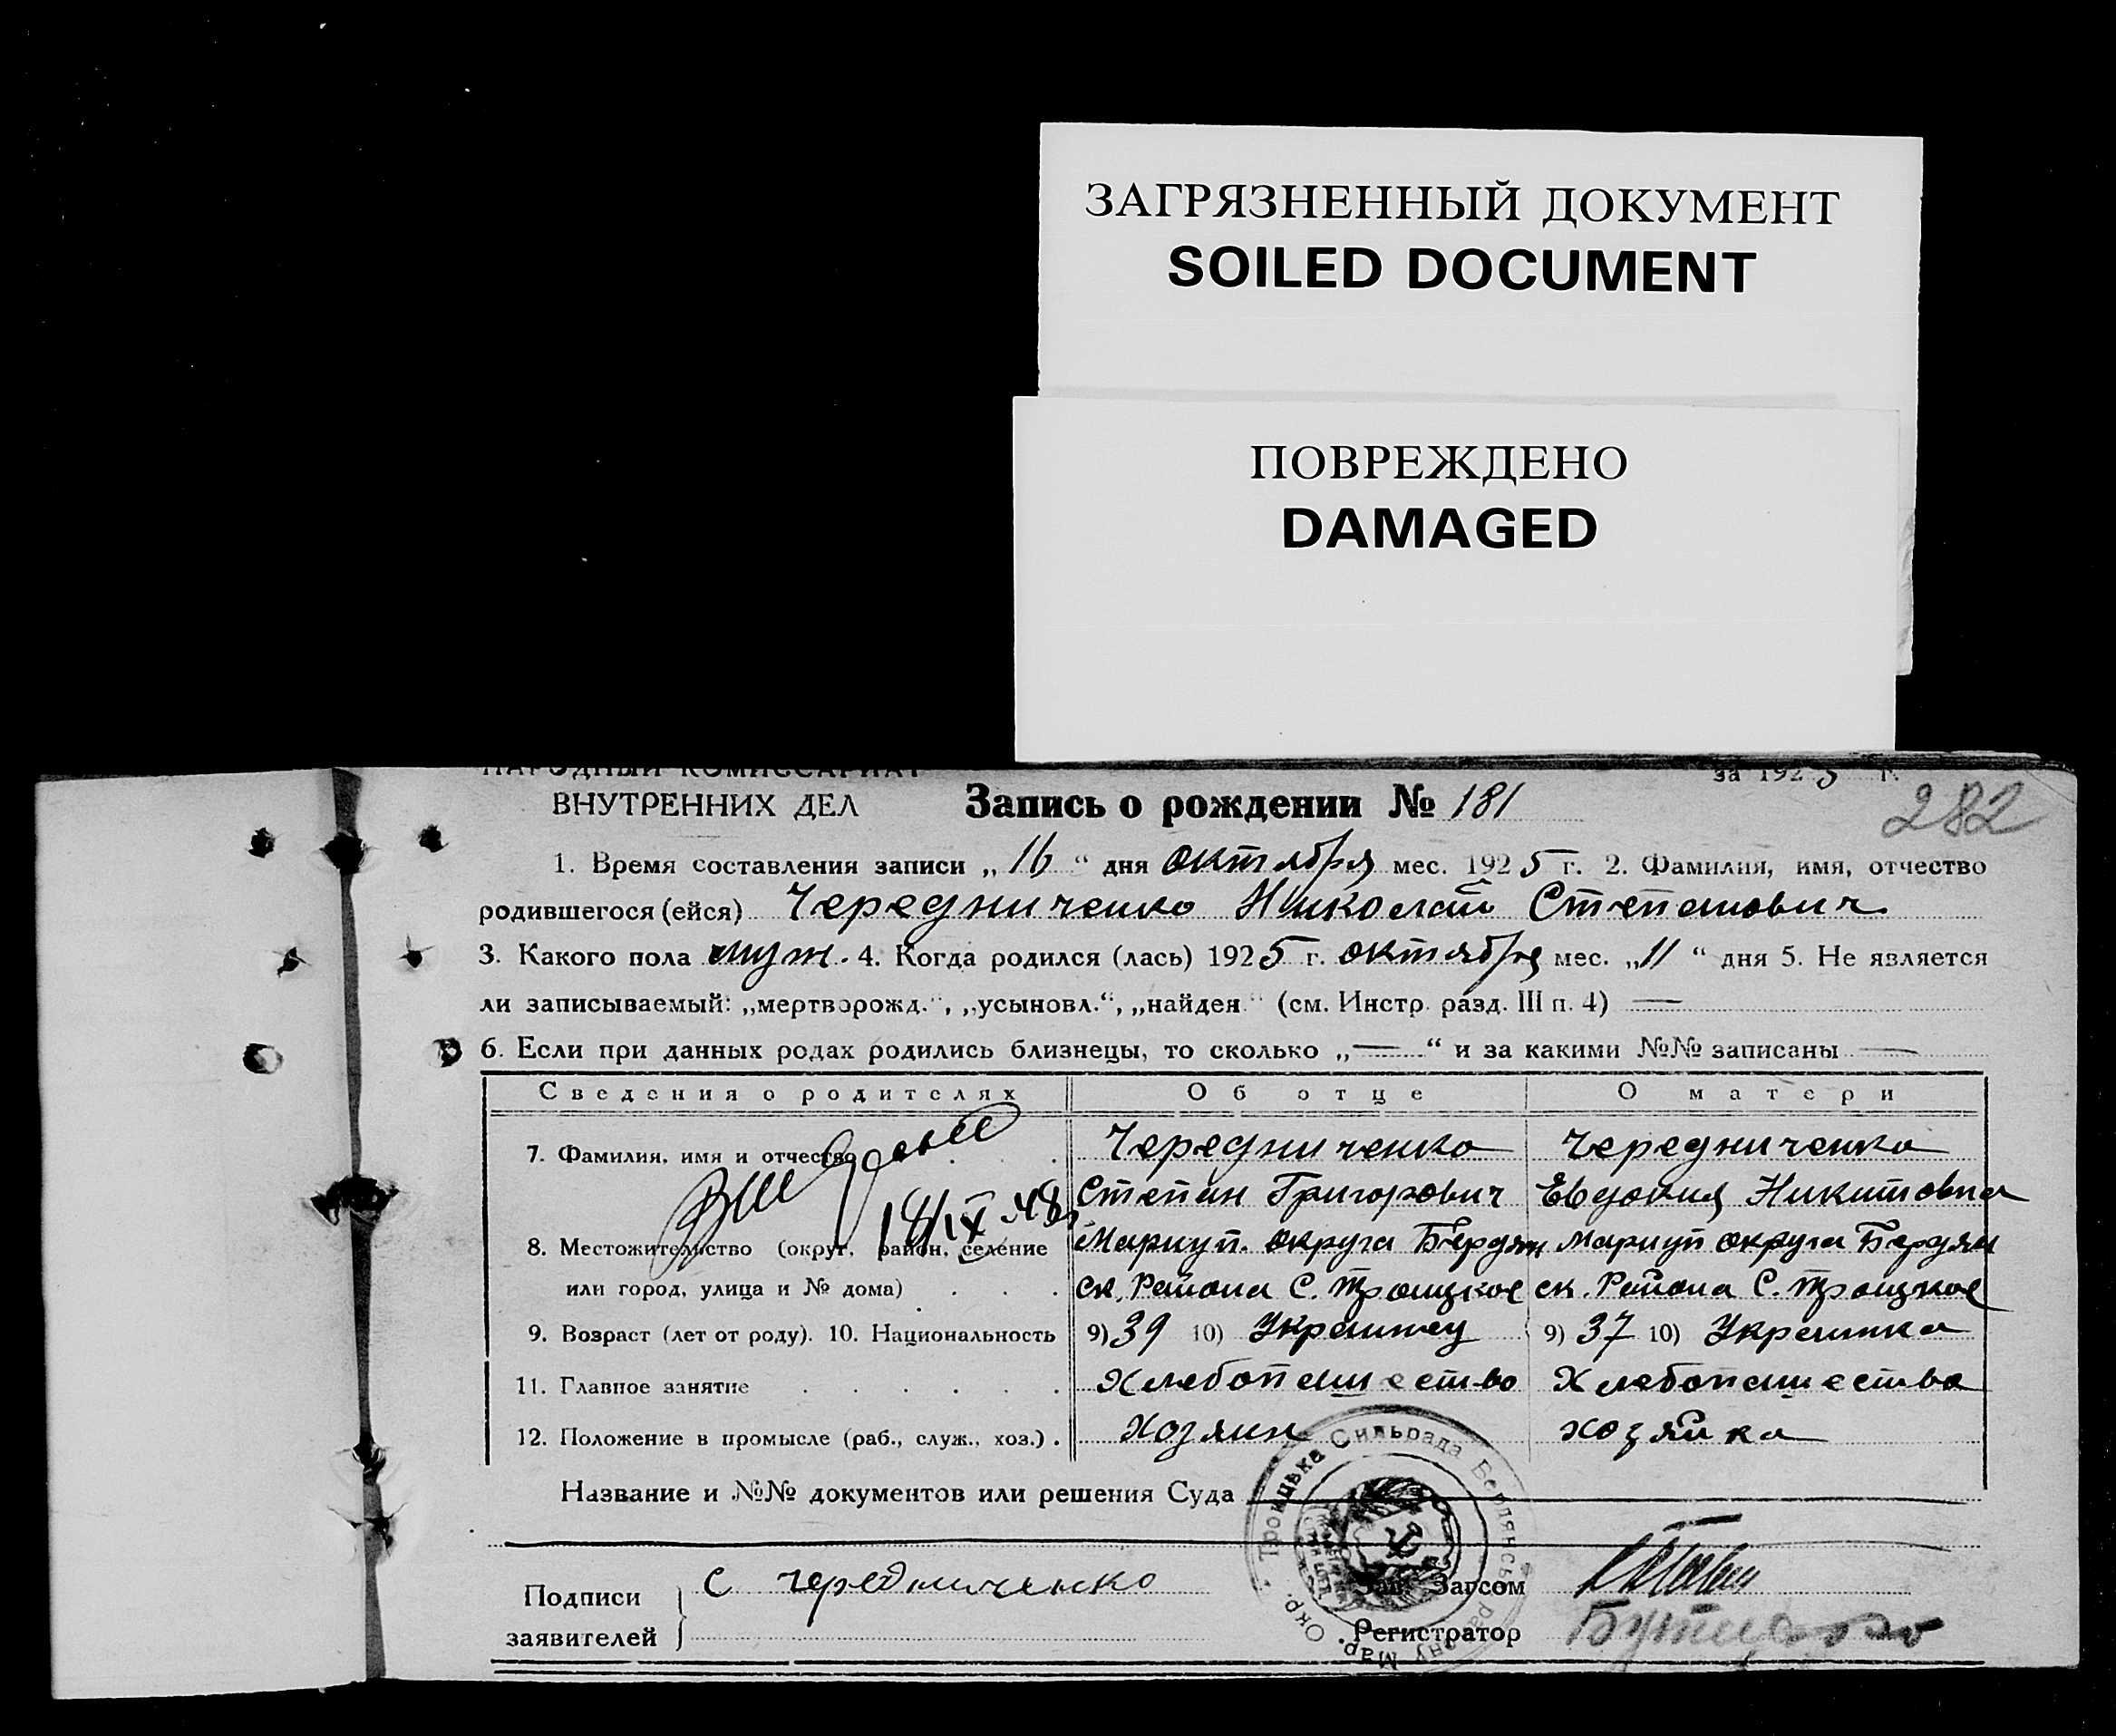 ЗАГРЯЗНЕННЫЙ ДОКУМЕНТ
SOILED DOCUMENT
ПОВРЕЖДЕНО
DAMAGED
НАРОДНЫЙ КОМИССАРИАТ
за 1925 г.
ВНУТРЕННИХ ДЕЛ Запись о рождении № 181
282
1. Время составления записи „16“ дня октября мес. 1925 г. 2. Фамилия, имя, отчество
родившегося (ейся) Чередниченко Николай Степанович
3. Какого пола муж. 4. Когда родился (лась) 1925 г. октября мес. „11“ дня 5. Не является
ли записываемый: „мертворожд.“, „усыновл.“, „найден“ (см. Инстр. разд. III п. 4) —
6. Если при данных родах родились близнецы, то сколько „—“ и за какими №№ записаны —
Сведения о родителях Об отце О матери
7. Фамилия, имя и отчество Чередниченко Чередниченко
Степан Григорович Евдокия Никитовна
18/IX 48
8. Местожительство (округ, район, селение Мариуп. округа Бердян Мариуп округа Бердян
или город, улица и № дома) ск. Района С. Троицкое ск. Района С. Троицкое
9. Возраст (лет от роду). 10. Национальность 9) 39 10) Украинец 9) 37 10) Украинка
11. Главное занятие Хлебопашество Хлебопашество
12. Положение в промысле (раб., служ., хоз.) . Хозяин хозяйка
Название и №№ документов или решения Суда
Троицька Сильрада Бердянськ району Мар. Окр.
Подписи С Чередниченко Зав. Загсом
заявителей Регистратор